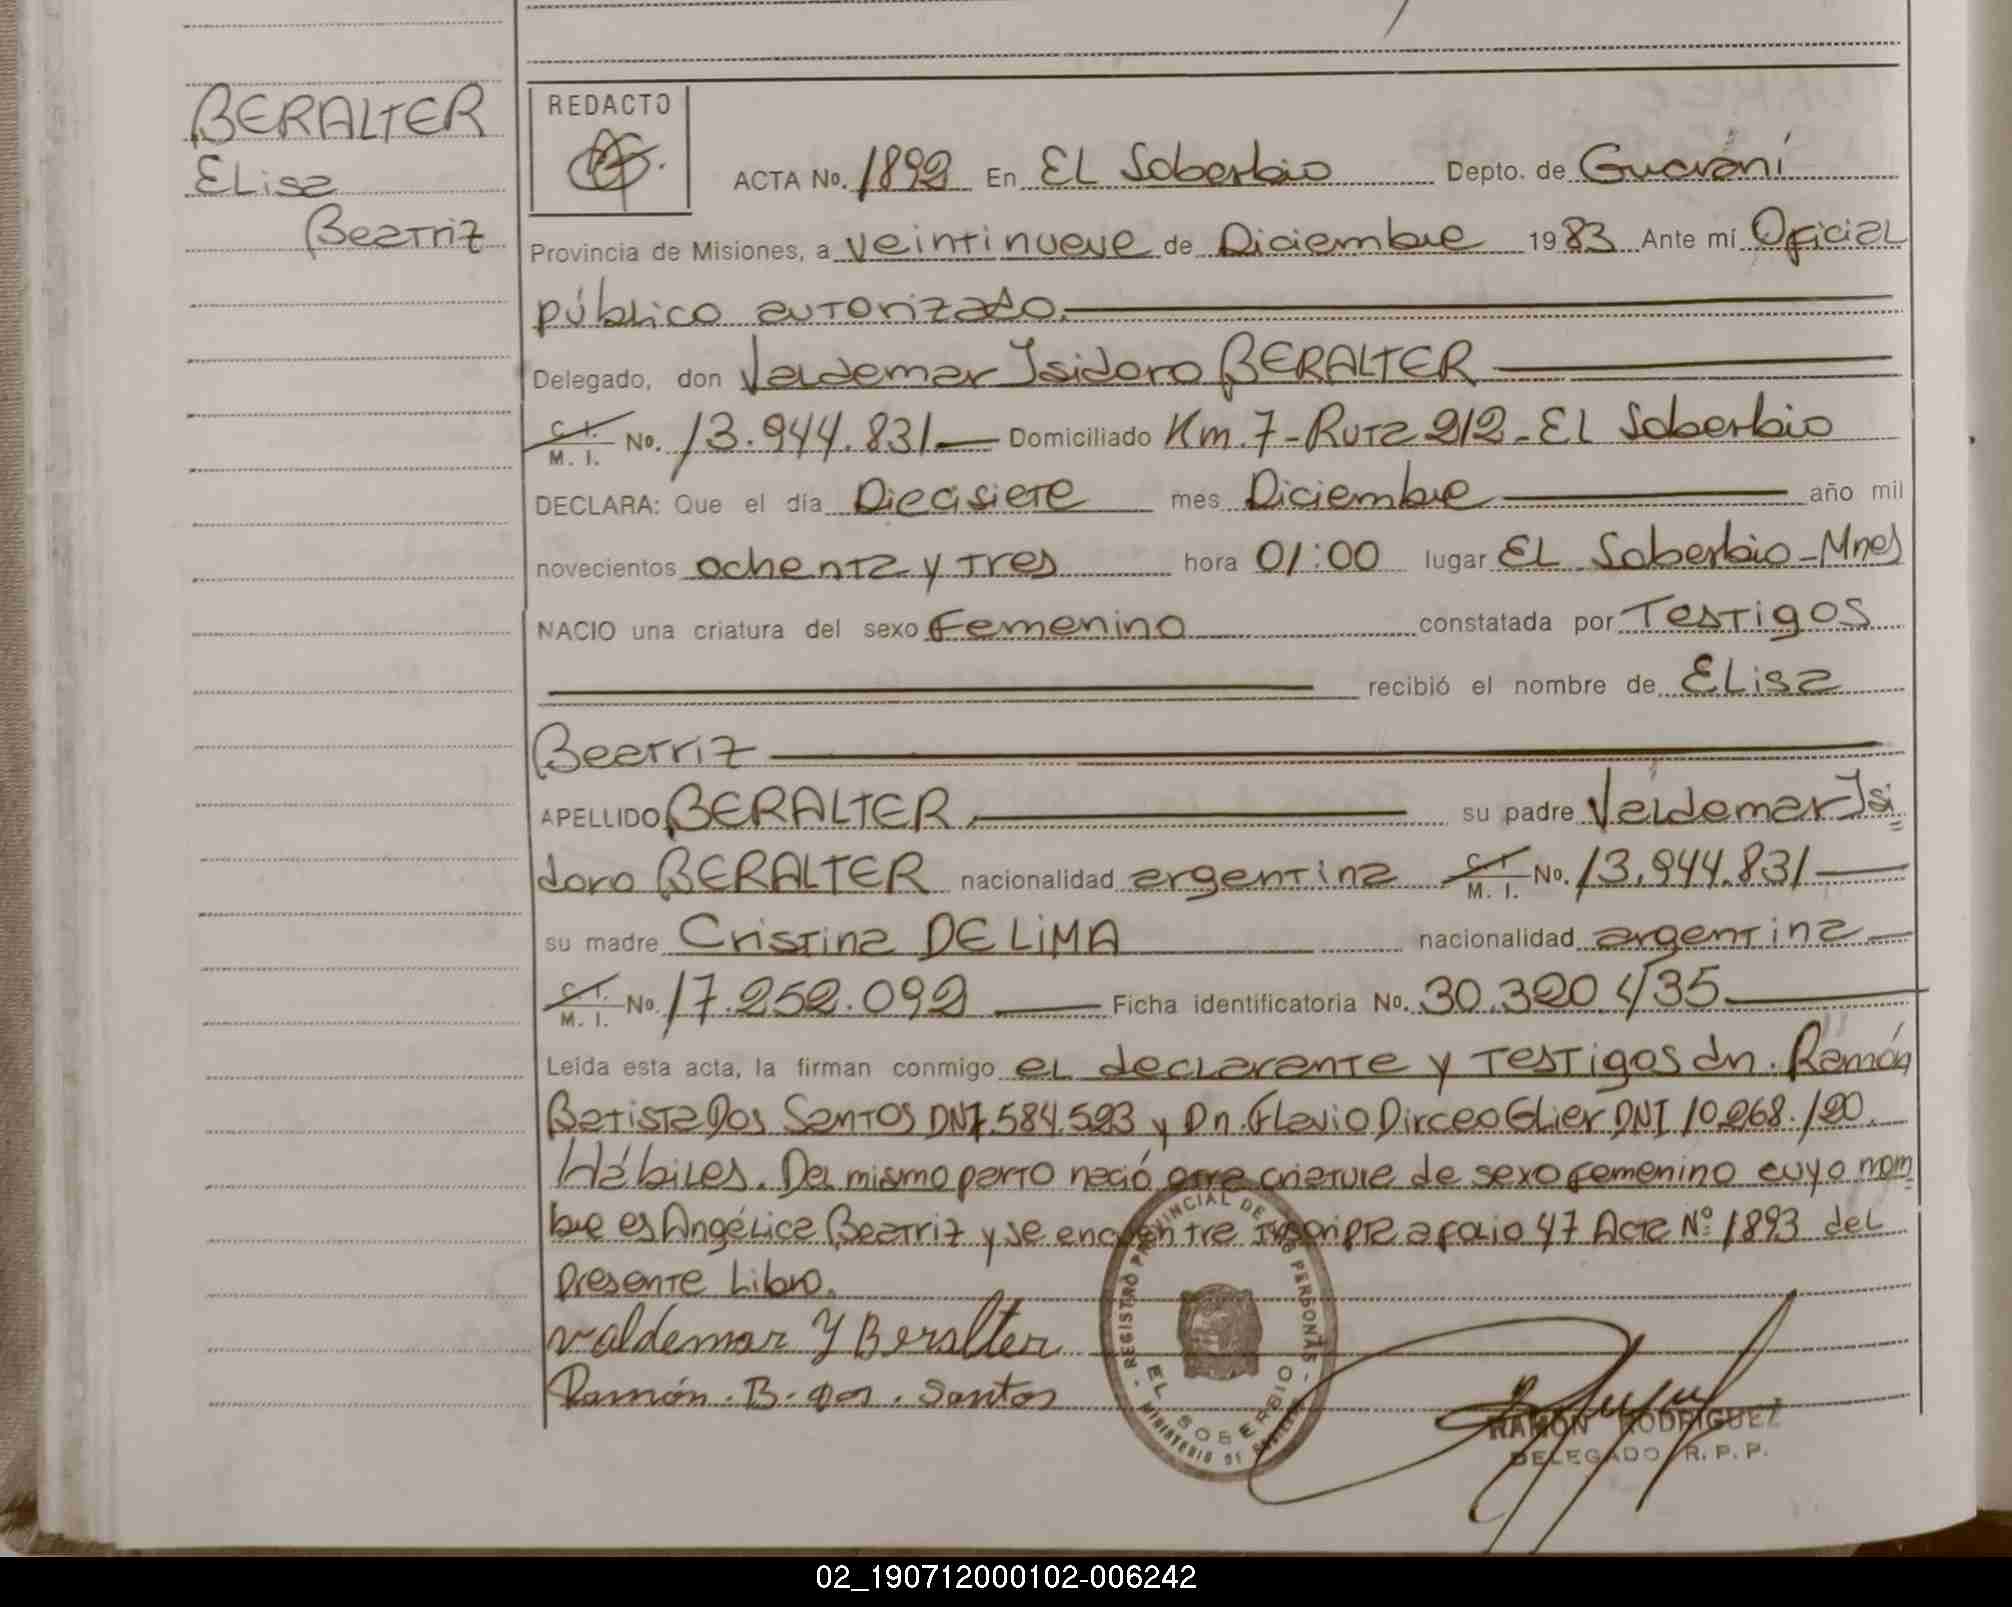 BERALTER
Elisa
Beatriz
REDACTO
ACTA No. 1892 En El Soberbio Depto. de Guaraní
Provincia de Misiones, a veintinueve de Diciembre 1983 Ante mí Oficial
público autorizado.
Delegado, don Valdemar Isidoro BERALTER
C. I. M. I. No. 13.944.831 Domiciliado Km. 7 - Ruta 212 - El Soberbio
DECLARA: Que el día Diecisiete mes Diciembre año mil
novecientos ochenta y tres hora 01:00 lugar El Soberbio - Mnes
NACIO una criatura del sexo Femenino constatada por Testigos
recibió el nombre de Elisa
Beatriz
APELLIDO BERALTER su padre Valdemar Isi
doro BERALTER nacionalidad argentina C. I. M. I. No. 13.944.831
su madre Cristina DE LIMA nacionalidad argentina
C. I. M. I. No. 17.252.092 Ficha identificatoria No. 30.320.435
Leída esta acta, la firman conmigo el declarante y testigos dn. Ramón
Batista Dos Santos DNI 7.584.523 y Dn. Flavio Dirceo Glier DNI 10.268.120.
Hábiles. Del mismo parto nació otra criatura de sexo femenino cuyo nom
bre es Angélica Beatriz y se encuentra inscripta a folio 47 Acta Nº 1893 del
presente Libro.
Valdemar Y Beralter
Ramón. B. dos. Santos
REGISTRO PROVINCIAL DE LAS PERSONAS
EL SOBERBIO
MINISTERIO DE
RAMON RODRIGUEZ
DELEGADO R. P. P.
02_190712000102-006242